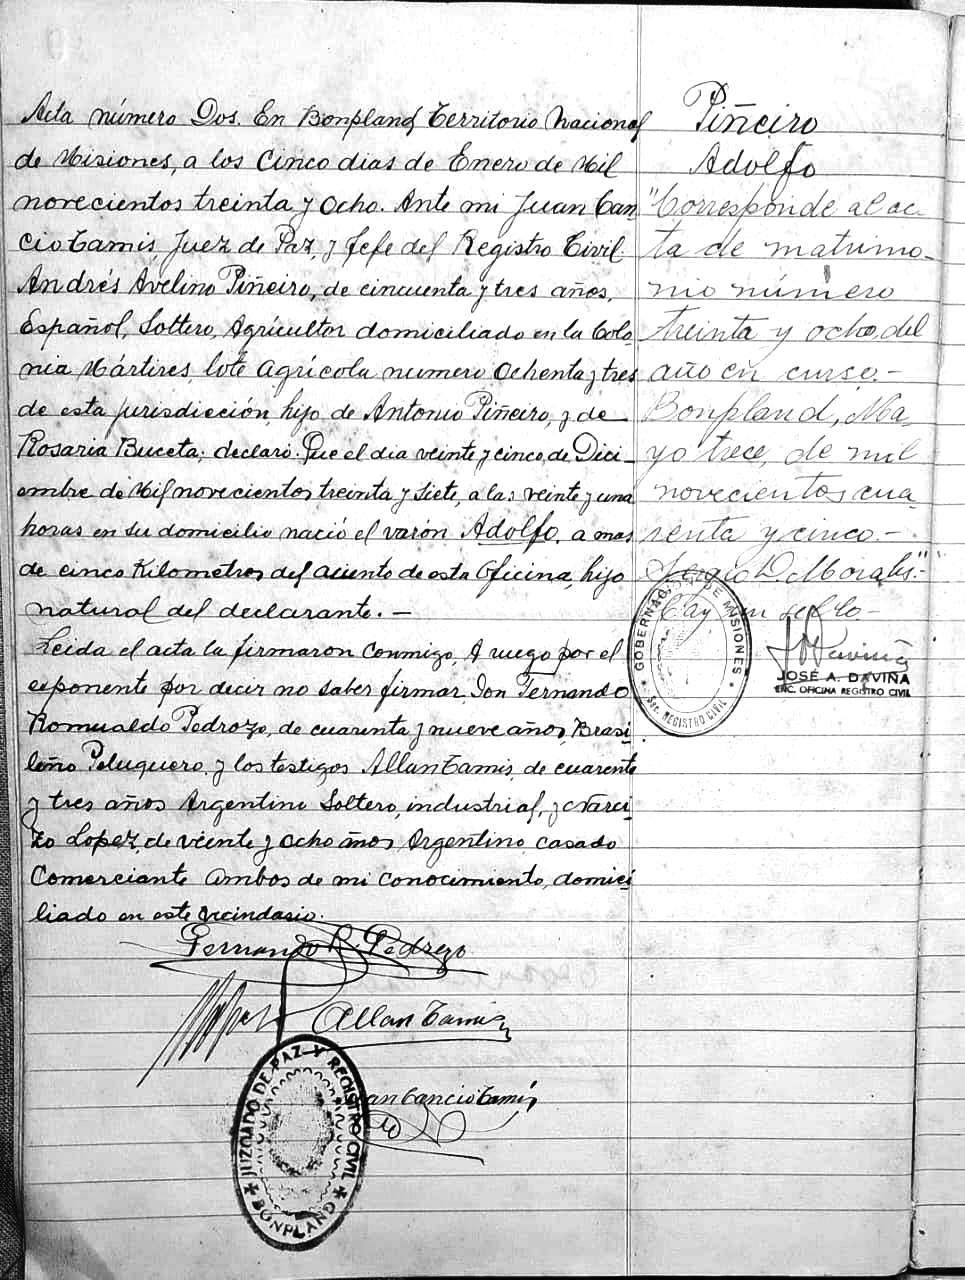 Acta número Dos. En Bonpland Territorio Nacional
de Misiones, a los Cinco dias de Enero de Mil
novecientos treinta y Ocho. Ante mi Juan Can
cio Tamis, Juez de Paz, y Jefe del Registro Civil.
Andrés Avelino Piñeiro, de cincuenta y tres años,
Español, Soltero, Agrícultor domiciliado en la Colo
nia Mártires, lote Agrícola numero Ochenta y tres
de esta jurisdicción, hijo de Antonio Piñeiro, y de
Rosaria Buceta; declaró: Que el dia veinte y cinco, de Dici-
embre de Mil novecientos treinta y Siete, a las veinte y una
horas en su domicilio nació el varón Adolfo, a mas
de cinco Kilometros del aciento de esta Oficina, hijo
natural del declarante.-
Leida el acta la firmaron conmigo, A ruego por el
exponente por decir no saber firmar, Don Fernando
Romualdo Pedrozo, de cuarenta y nueve años, Brasi
leño Peluquero, y los testigos Allan Tamis, de cuarente
y tres años Argentino Soltero, industrial, y Narci
zo Lopez, de veinte y ocho años, Argentino, casado
Comerciante ambos de mi conocimiento, domici
liado en este vecindasio.
Fernando R. Pedrozo
Allan Tamis
Juan Cancio Tamis
JUZGADO DE PAZ Y REGISTRO CIVIL
BONPLAND
Piñeiro
Adolfo
"Corresponde al ac-
ta de matrimo-
nio número
treinta y ocho, del
año en curso.-
Bonpland, Ma-
yo trece, de mil
novecientos cua-
renta y cinco.-
Sergio D. Morales".-
Hay un sello-
GOBERNACION DE MISIONES
Sec. REGISTRO CIVIL
JDaviña
JOSÉ A. DAVIÑA
ENC. OFICINA REGISTRO CIVIL